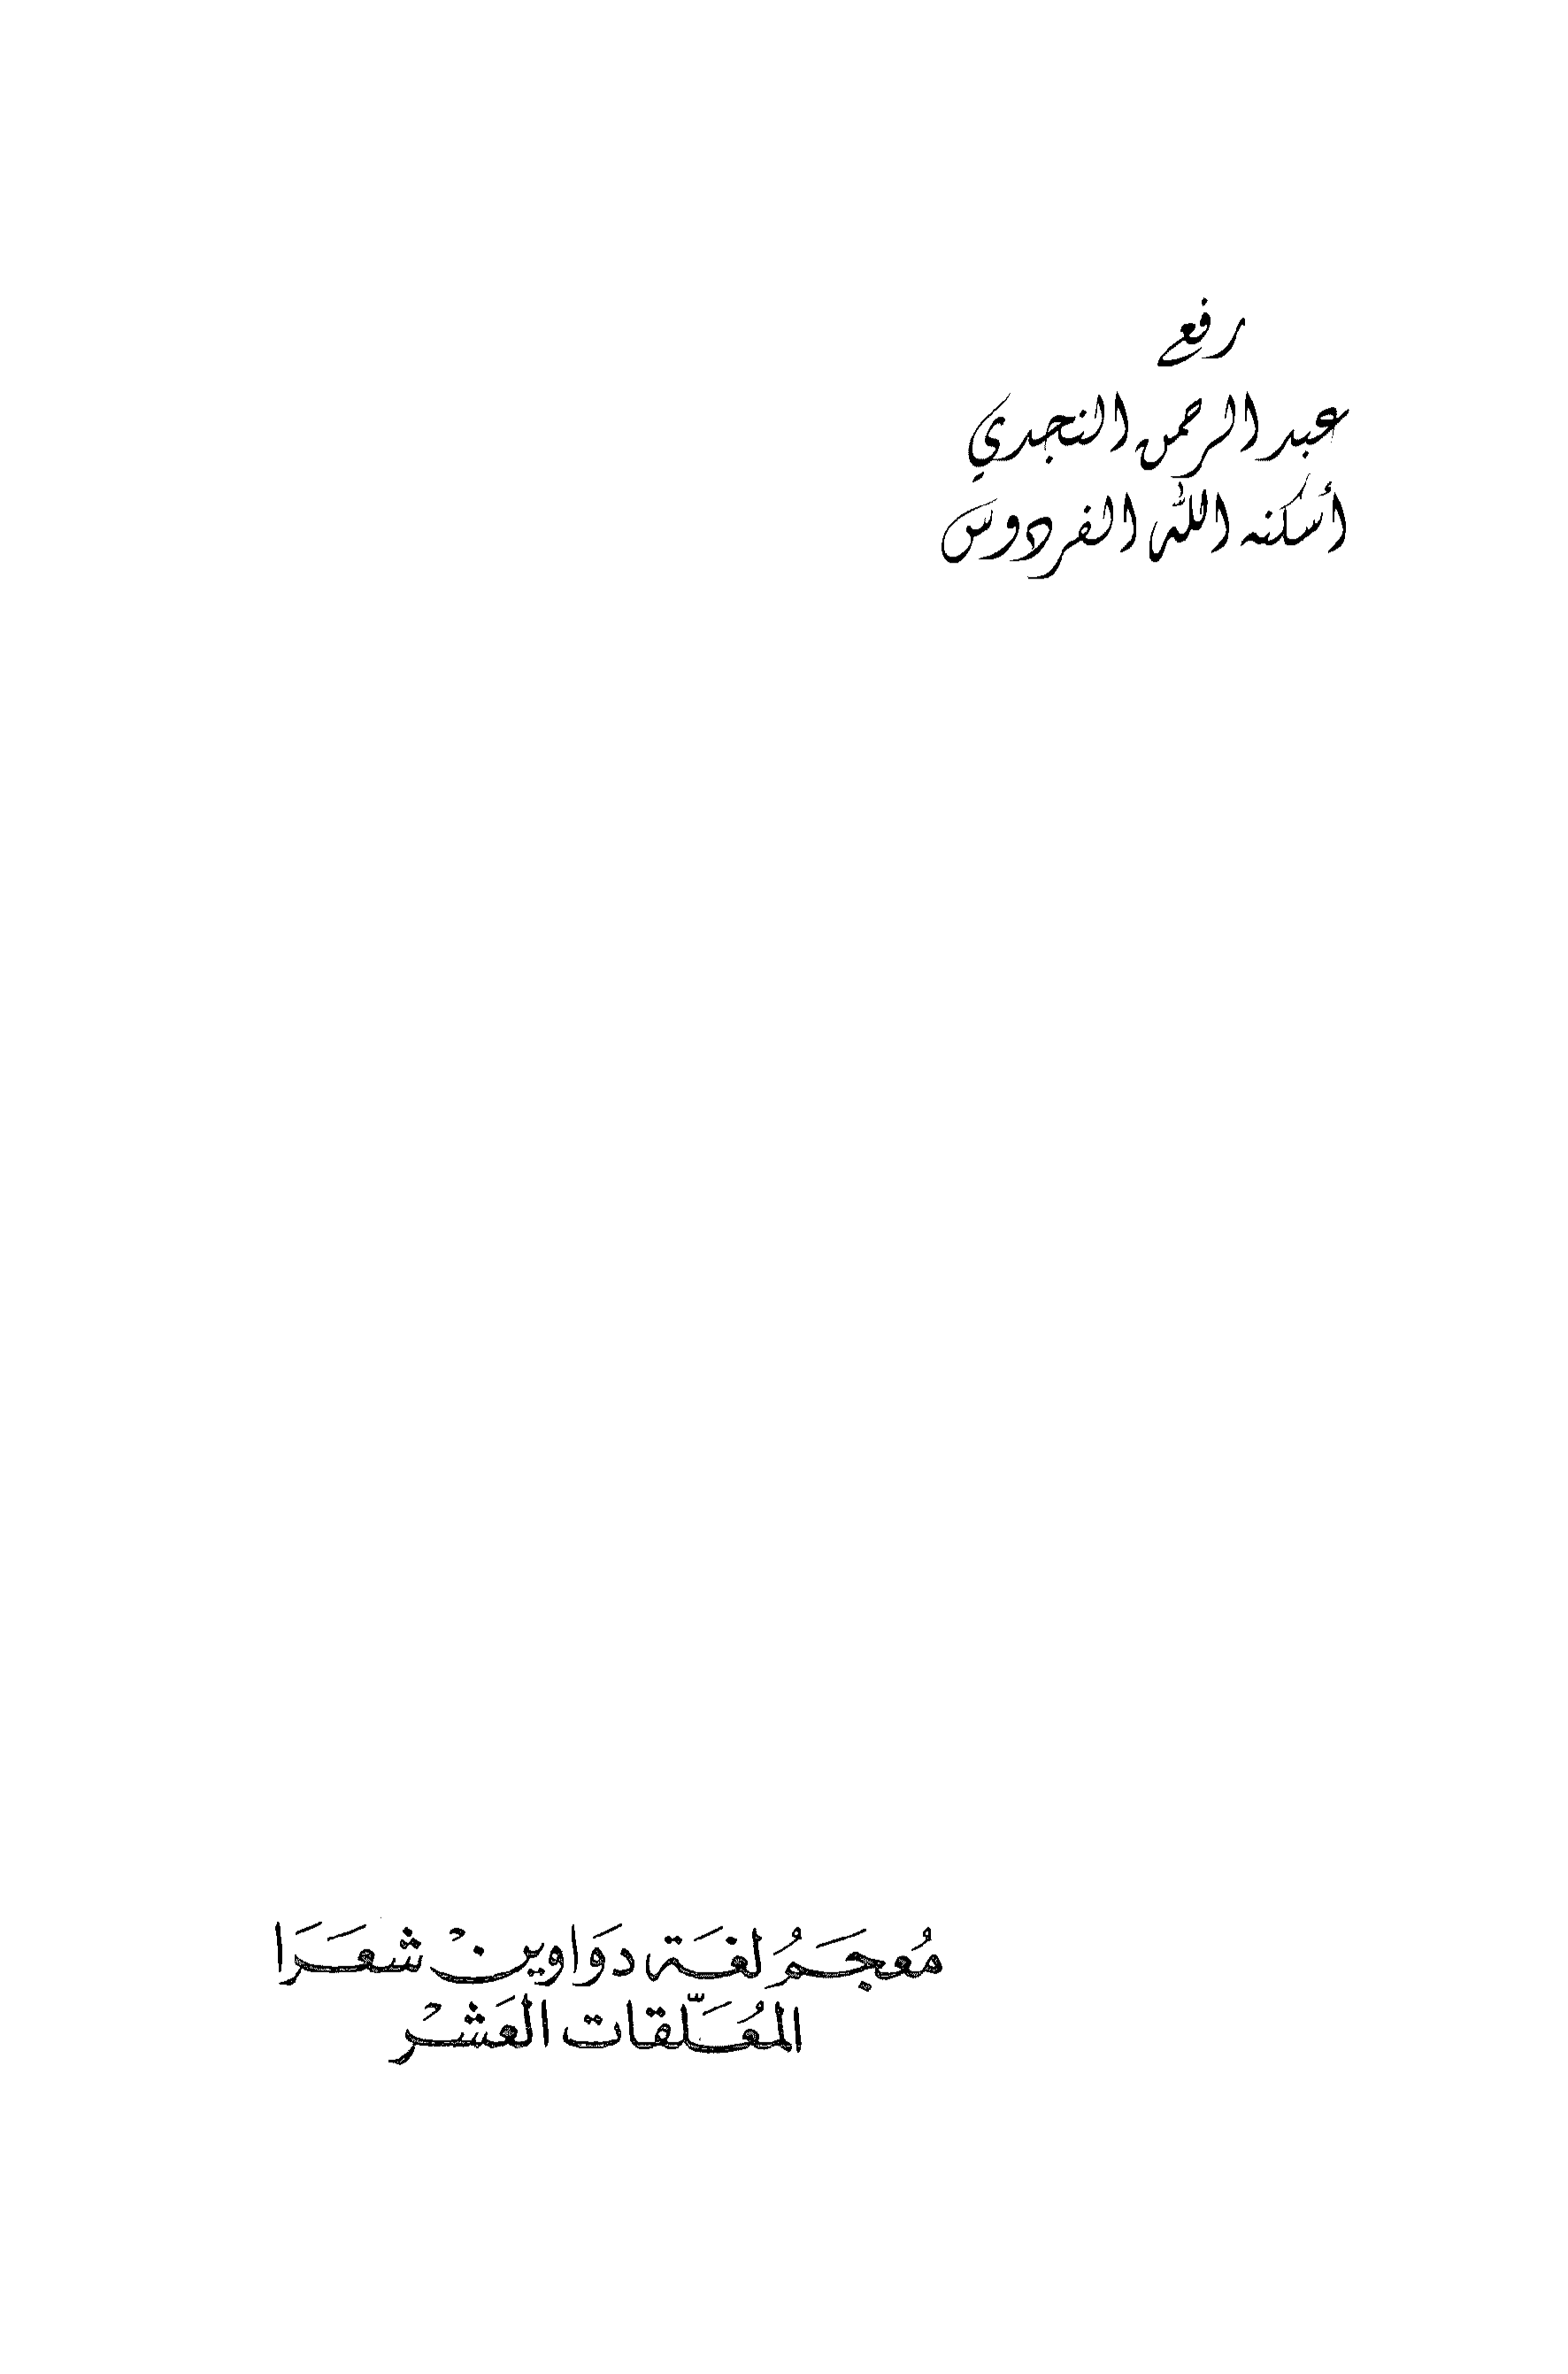 رفع
عبد الرحمن النجدي
أسكنه الله الفردوس
مُعجَمُ لغَة دوَاوينْ شعَرَا
المُعَلّقات العَشْر